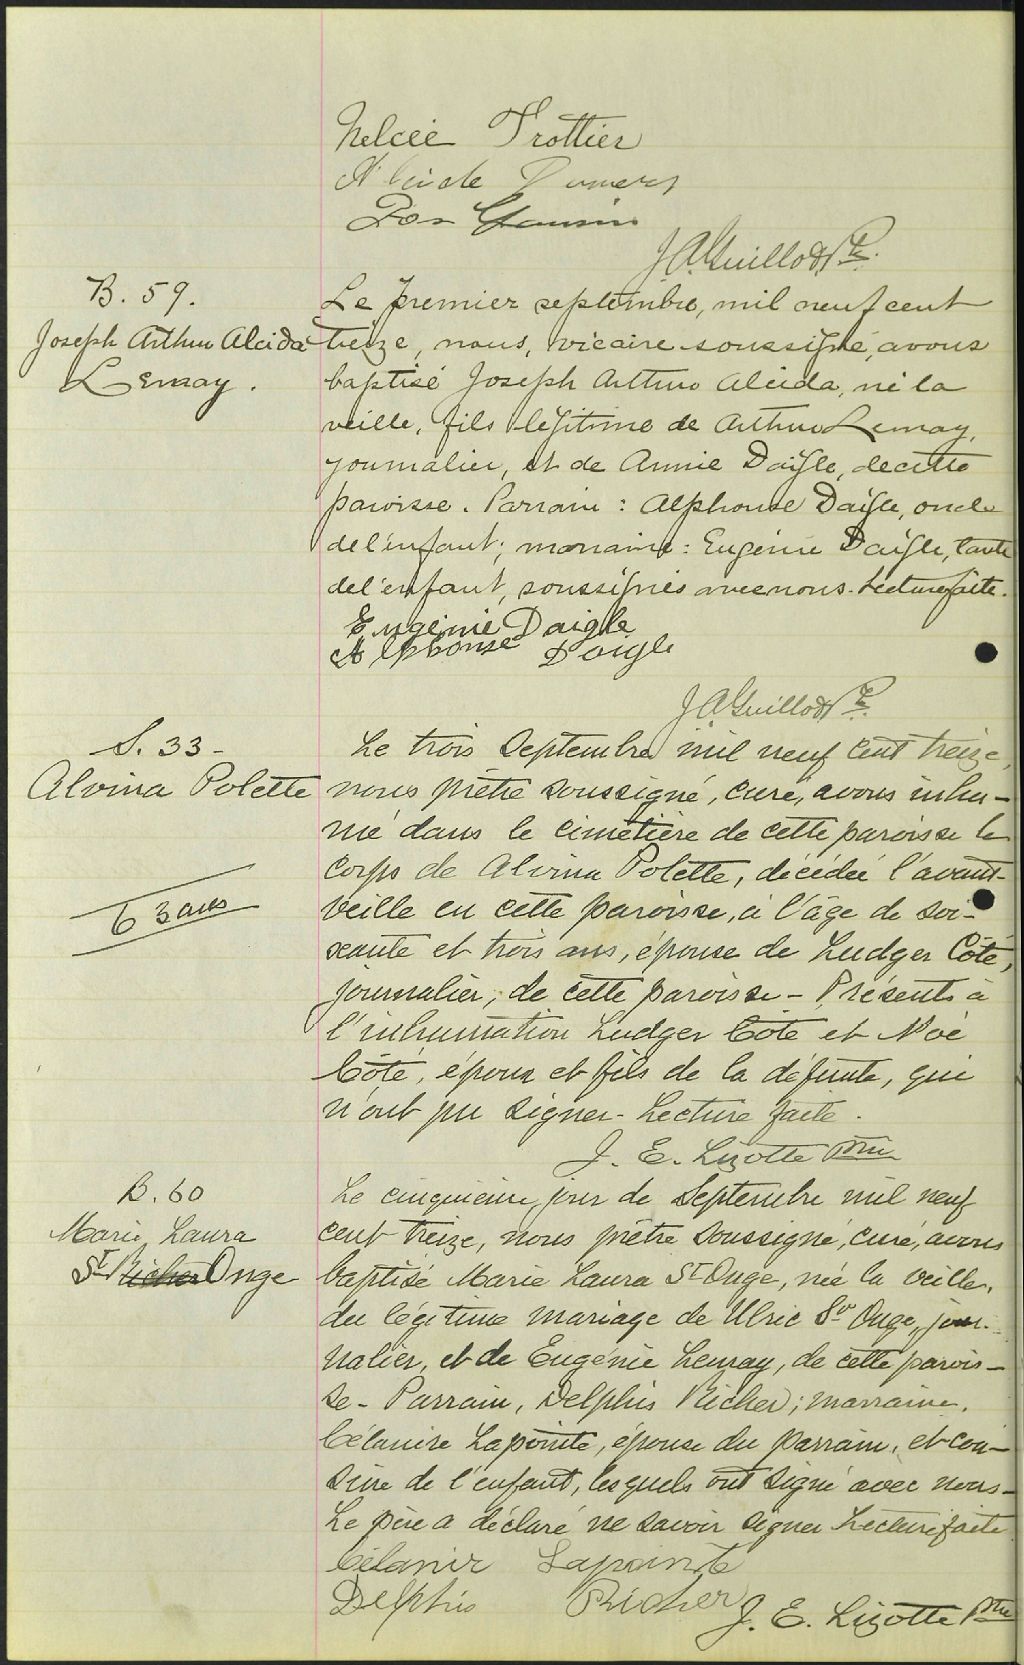 Trottier
J. A. Guillod Ptr.
B. 59.
Joseph Arthur Alcida
Lemay.
Le premier septembre, mil neuf cent
treize, nous, vicaire soussigné, avons
baptisé Joseph Arthur Alcida, né la
veille, fils légitime de Arthur Lemay,
journalier, et de Annie Daigle, de cette
paroisse. Parrain : Alphonse Daigle, oncle
de l'enfant; marraine : Eugénie Daigle, tante
de l'enfant, soussignés avec nous. Lecture faite.
Eugénie Daigle
Alphonse Daigle
J. A. Guillod Ptr.
S. 33 -
Alvina Polette
63 ans
Le trois Septembre mil neuf cent treize,
nous prêtre soussigné, curé, avons inhu-
mé dans le cimetière de cette paroisse le
corps de Alvina Polette, décédée l'avant-
veille en cette paroisse, à l'âge de soi-
xante et trois ans, épouse de Ludger Côté,
journalier, de cette paroisse - Présents à
l'inhumation Ludger Côté et Noé
Côté, époux et fils de la défunte, qui
n'ont pu signer - Lecture faite.
J. E. Lizotte Ptre
B. 60
Marie Laura
St Richer Onge
Le cinquième jour de Septembre mil neuf
cent treize, nous prêtre soussigné, curé, avons
baptisé Marie Laura St Onge, née la veille,
du légitime mariage de Ulric St Onge, jour-
nalier, et de Eugénie Lemay, de cette parois-
se - Parrain, Delphis Richer; marraine,
Célanire Lapointe, épouse du parrain, et cou-
sine de l'enfant, lesquels ont signé avec nous -
Le père a déclaré ne savoir signer Lecture faite
Célanir Lapointe
Delphis Richer
J. E. Lizotte Ptre